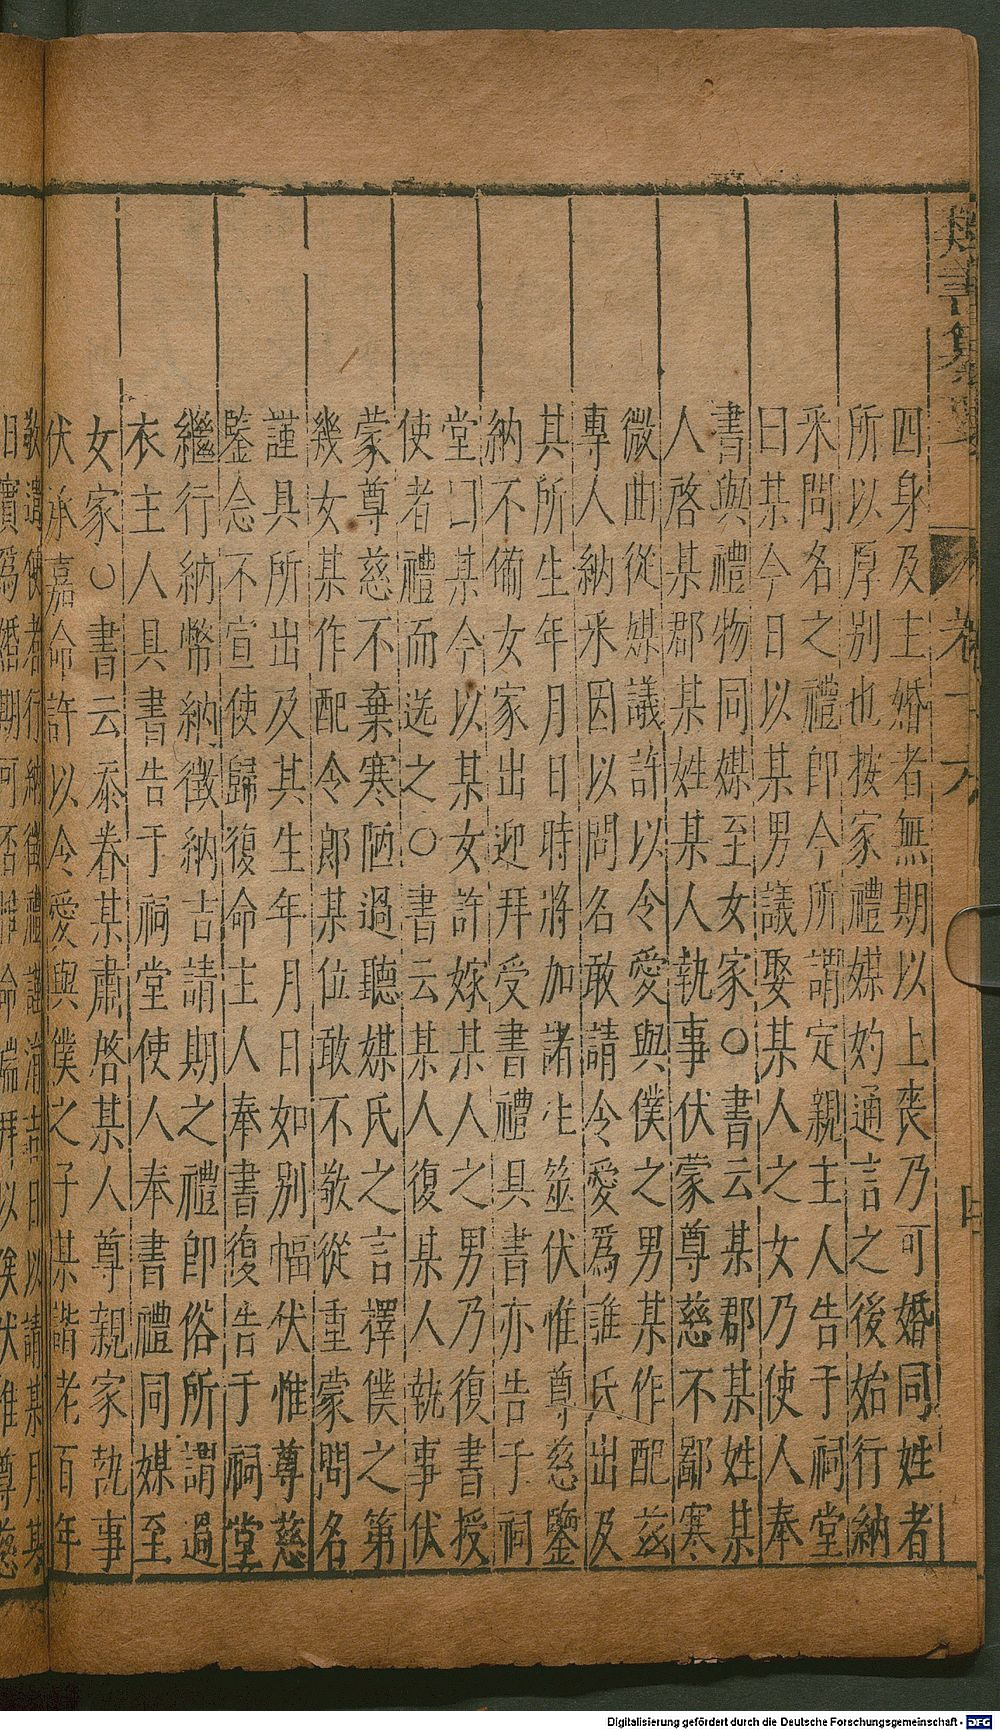 四身及主婚者無期以上喪乃可婚同姓者
所以厚別也按家禮媒妁通言之後始行納
采問名之禮即今所謂定親主人告于祠堂
曰某今日以某男議娶某人之女乃使人奉
書與禮物同媒至女家○書云某郡某姓某
人啓某郡某姓某人執事伏蒙尊慈不鄙寒
微曲從媒議許以令愛與僕之男某作配茲
專人納采因以問名敢請令愛爲誰氏出及
其所生年月日時將加諸卜筮伏惟尊慈鑒
納不備女家出迎拜受書禮具書亦告于祠
堂曰某今以某女許嫁某人之男乃復書授
使者禮而送之○書云某人復某人執事伏
蒙尊慈不棄寒陋過聽媒氏之言擇僕之第
幾女某作配令郎某位敢不敬從重蒙問名
謹具所出及其生年月日如別幅伏惟尊慈
鑒念不宣使歸復命主人奉書復告于祠堂
繼行納幣納徵納吉請期之禮即俗所謂過
衣主人具書告于祠堂使人奉書禮同媒至
女家○書云忝眷某肅啓某人尊親家執事
伏承嘉命許以令愛與僕之子某諧老百年
敬遣使者行納徵禮謹涓吉日以請某月某
日實爲婚期可否惟命端拜以俟伏惟尊慈
卷十六
Digitalisierung gefördert durch die Deutsche Forschungsgemeinschaft - DFG